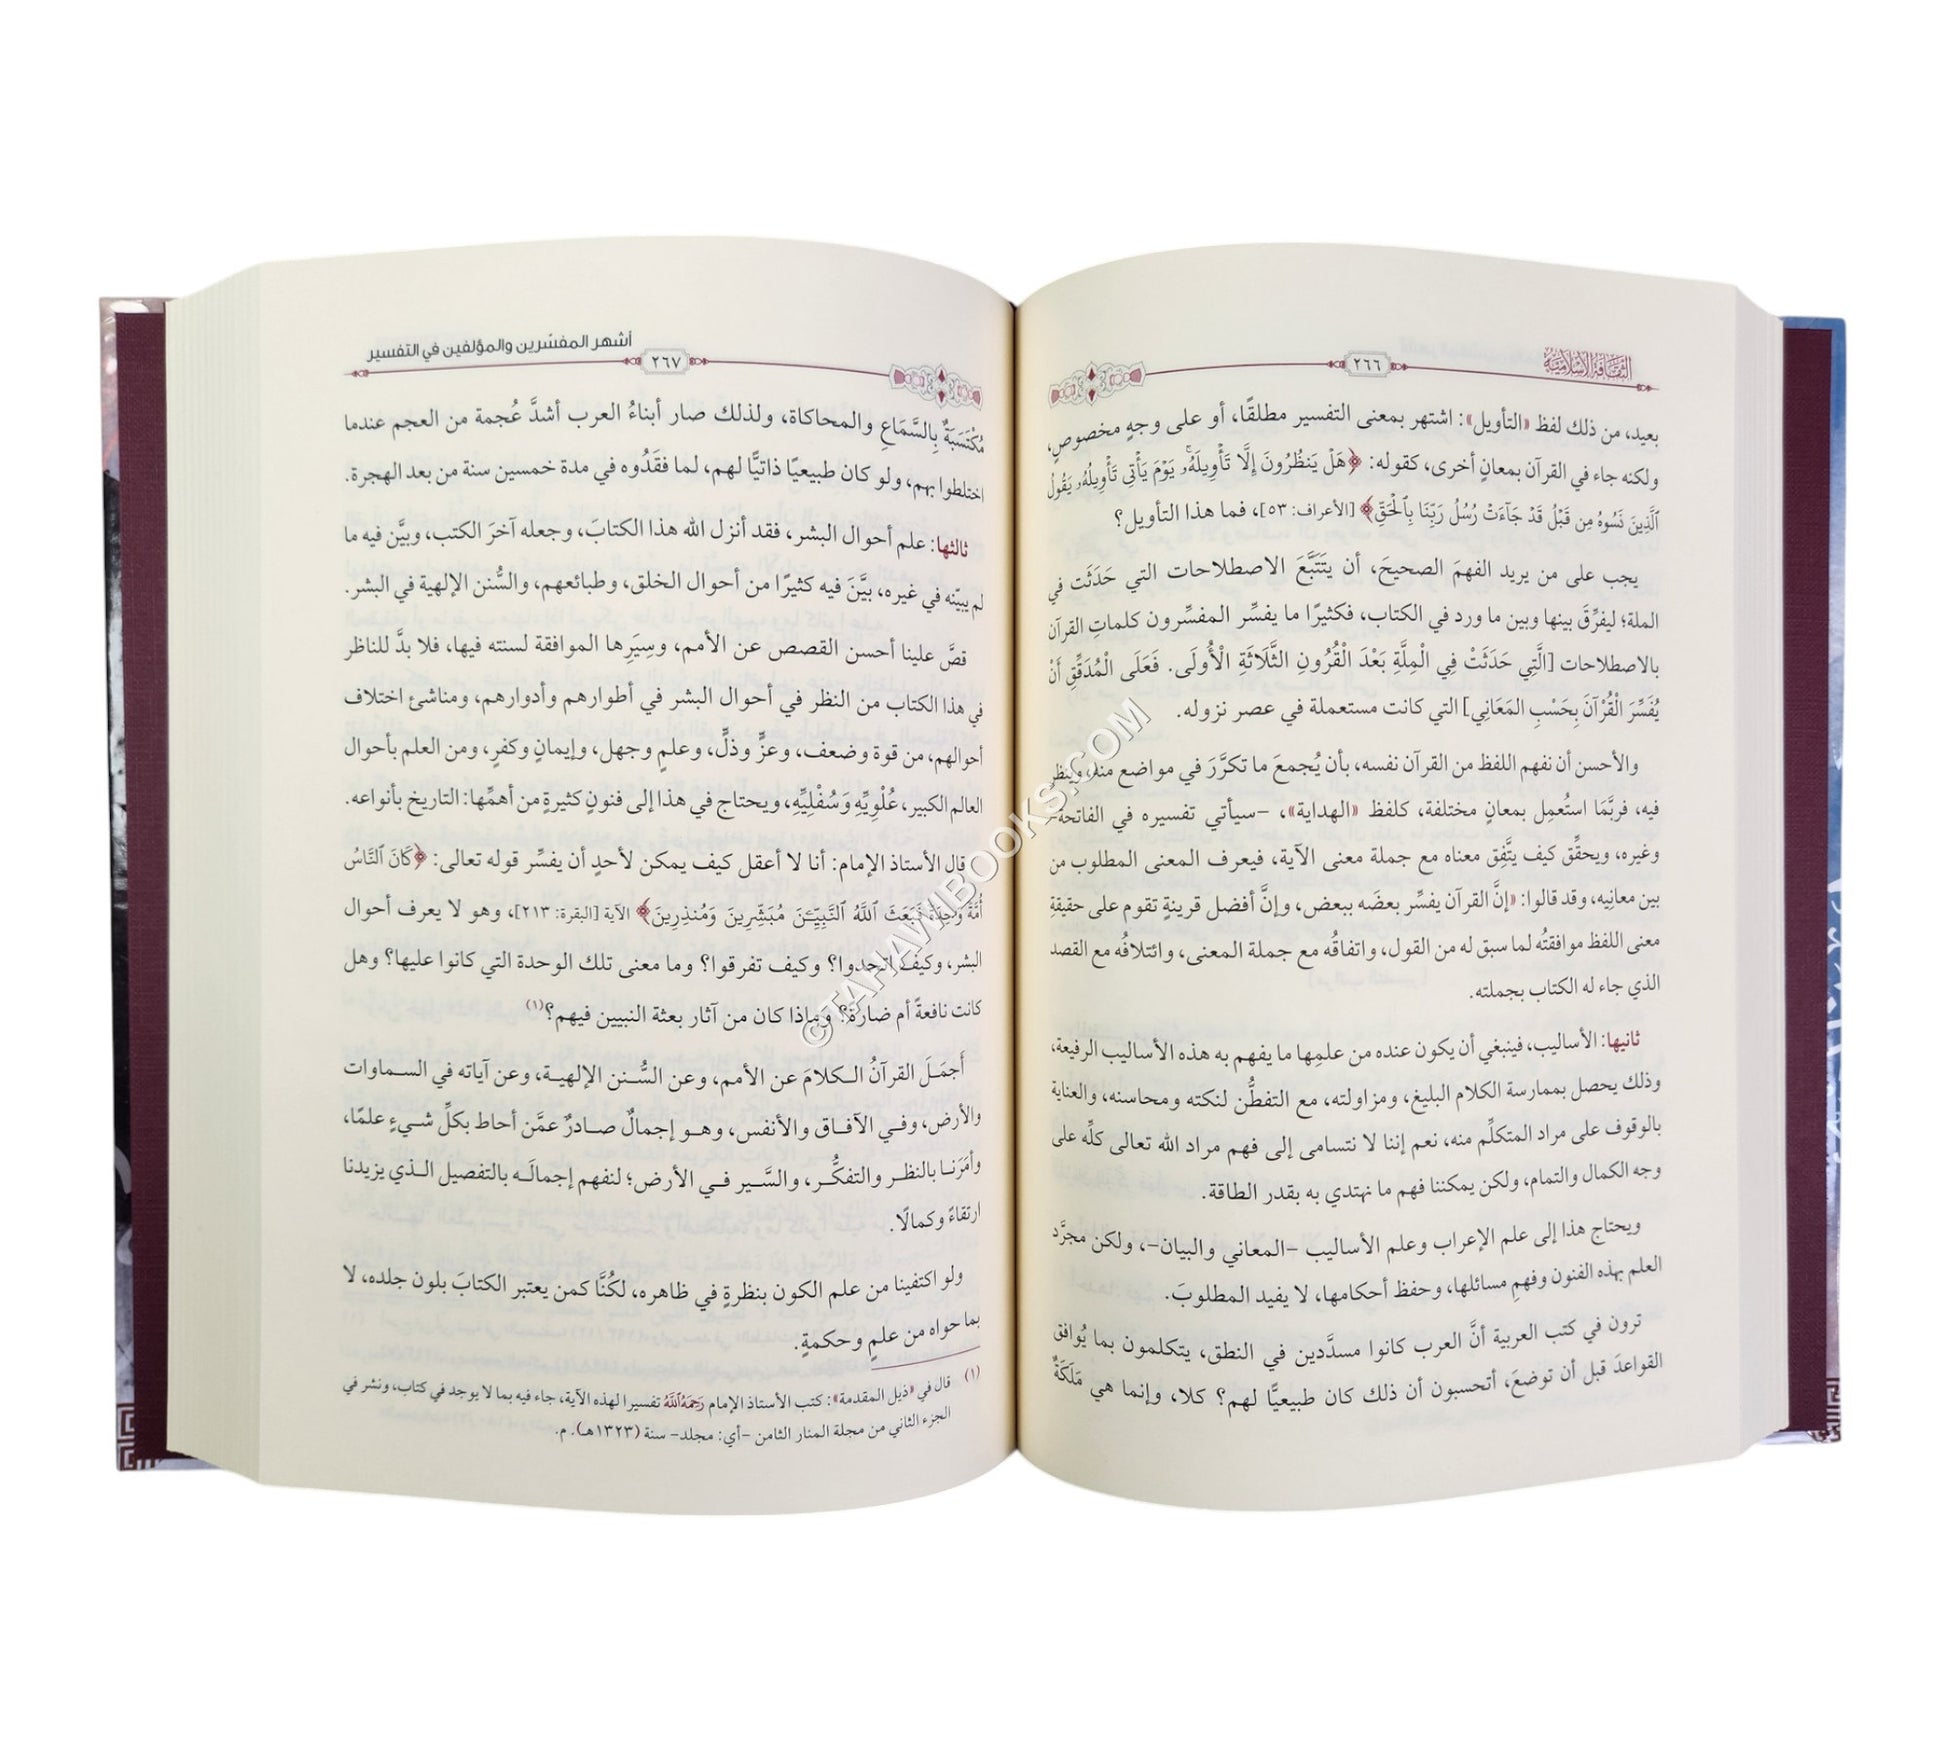 الثقافة الإسلامية
٢٦٦
بعيد، من ذلك لفظ «التأويل»: اشتهر بمعنى التفسير مطلقًا، أو على وجهٍ مخصوصٍ،
ولكنه جاء في القرآن بمعانٍ أخرى، كقوله: ﴿هَلْ يَنظُرُونَ إِلَّا تَأْوِيلَهُۥۚ يَوْمَ يَأْتِى تَأْوِيلُهُۥ يَقُولُ
ٱلَّذِينَ نَسُوهُ مِن قَبْلُ قَدْ جَآءَتْ رُسُلُ رَبِّنَا بِٱلْحَقِّ﴾ [الأعراف: ٥٣]، فما هذا التأويل؟
يجب على من يريد الفهمَ الصحيحَ، أن يتَتَبَّعَ الاصطلاحات التي حَدَثَت في
الملة؛ ليفرِّقَ بينها وبين ما ورد في الكتاب، فكثيرًا ما يفسِّر المفسِّرون كلماتِ القرآن
بالاصطلاحات [الَّتِي حَدَثَتْ فِي الْمِلَّةِ بَعْدَ الْقُرُونِ الثَّلَاثَةِ الْأُولَى. فَعَلَى الْمُدَقِّقِ أَنْ
يُفَسِّرَ الْقُرْآنَ بِحَسْبِ المَعَانِي] التي كانت مستعملة في عصر نزوله.
والأحسن أن نفهم اللفظ من القرآن نفسه، بأن يُجمعَ ما تكرَّرَ في مواضع منه، وينظر
فيه، فربَّمَا استُعمِل بمعانٍ مختلفة، كلفظ «الهداية»، -سيأتي تفسيره في الفاتحة-
وغيره، ويحقِّق كيف يتَّفِق معناه مع جملة معنى الآية، فيعرف المعنى المطلوب من
بين معانِيه، وقد قالوا: «إنَّ القرآن يفسِّر بعضَه ببعض، وإنَّ أفضل قرينةٍ تقوم على حقيقةِ
معنى اللفظ موافقتُه لما سبق له من القول، واتفاقُه مع جملة المعنى، وائتلافُه مع القصد
الذي جاء له الكتاب بجملته.
ثانيها: الأساليب، فينبغي أن يكون عنده من علمِها ما يفهم به هذه الأساليب الرفيعة،
وذلك يحصل بممارسة الكلام البليغ، ومزاولته، مع التفطُّن لنكته ومحاسنه، والعناية
بالوقوف على مراد المتكلِّم منه، نعم إننا لا نتسامى إلى فهم مراد الله تعالى كلِّه على
وجه الكمال والتمام، ولكن يمكننا فهم ما نهتدي به بقدر الطاقة.
ويحتاج هذا إلى علم الإعراب وعلم الأساليب -المعاني والبيان-، ولكن مجرَّد
العلم بهذه الفنون وفهمِ مسائلها، وحفظ أحكامها، لا يفيد المطلوبَ.
ترون في كتب العربية أنَّ العرب كانوا مسدَّدين في النطق، يتكلمون بما يُوافق
القواعدَ قبل أن توضعَ، أتحسبون أن ذلك كان طبيعيًّا لهم؟ كلا، وإنما هي مَلَكَةٌ
أشهر المفسّرين والمؤلفين في التفسير
٢٦٧
مُكْتَسَبَةٌ بِالسَّمَاعِ والمحاكاة، ولذلك صار أبناءُ العرب أشدَّ عُجمة من العجم عندما
اختلطوا بهم، ولو كان طبيعيًا ذاتيًّا لهم، لما فقَدُوه في مدة خمسين سنة من بعد الهجرة.
ثالثها: علم أحوال البشر، فقد أنزل الله هذا الكتابَ، وجعله آخرَ الكتب، وبيَّن فيه ما
لم يبيّنه في غيره، بيَّنَ فيه كثيرًا من أحوال الخلق، وطبائعهم، والسُّنن الإلهية في البشر.
قصَّ علينا أحسن القصص عن الأمم، وسِيَرِها الموافقة لسنته فيها، فلا بدَّ للناظر
في هذا الكتاب من النظر في أحوال البشر في أطوارهم وأدوارهم، ومناشئ اختلاف
أحوالهم، من قوة وضعف، وعزٍّ وذلٍّ، وعلمٍ وجهل، وإيمانٍ وكفرٍ، ومن العلم بأحوال
العالم الكبير، عُلْوِيِّهِ وَسُفْلِيِّهِ، ويحتاج في هذا إلى فنونٍ كثيرةٍ من أهمِّها: التاريخ بأنواعه.
قال الأستاذ الإمام: أنا لا أعقل كيف يمكن لأحدٍ أن يفسِّر قوله تعالى: ﴿كَانَ ٱلنَّاسُ
أُمَّةً وَٰحِدَةً فَبَعَثَ ٱللَّهُ ٱلنَّبِيِّـۧنَ مُبَشِّرِينَ وَمُنذِرِينَ﴾ الآية [البقرة: ٢١٣]، وهو لا يعرف أحوال
البشر، وكيف اتحدوا؟ وكيف تفرقوا؟ وما معنى تلك الوحدة التي كانوا عليها؟ وهل
كانت نافعةً أم ضارةً؟ وماذا كان من آثار بعثة النبيين فيهم؟(١)
أَجمَـلَ القرآنُ الـكلامَ عن الأمم، وعن السُّـنن الإلهيـة، وعن آياته في السـماوات
والأرض، وفـي الآفـاق والأنفس، وهـو إجمالٌ صـادرٌ عمَّن أحاط بكلِّ شـيءٍ علمًا،
وأمَرَنـا بالنظـر والتفكُّـر، والسَّـير فـي الأرض؛ لنفهم إجمالَـه بالتفصيل الـذي يزيدنا
ارتقاءً وكمالًا.
ولو اكتفينا من علم الكون بنظرةٍ في ظاهره، لكُنَّا كمن يعتبر الكتابَ بلون جلده، لا
بما حواه من علمٍ وحكمةٍ.
(١) قال في «ذيل المقدمة»: كتب الأستاذ الإمام رَحِمَهُ ٱللَّهُ تفسيرا لهذه الآية، جاء فيه بما لا يوجد في كتاب، ونشر في
الجزء الثاني من مجلة المنار الثامن -أي: مجلد- سنة (١٣٢٣هـ). م.
©TAHAWIBOOKS.COM